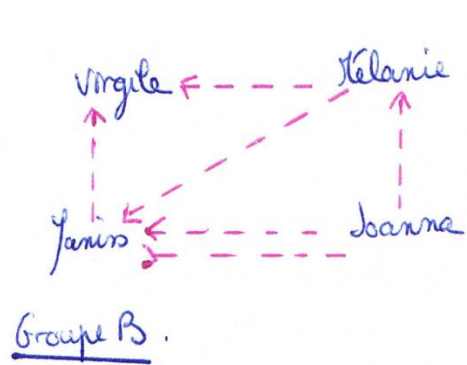 Virgile Mélanie
Janiss Joanna
Groupe B.